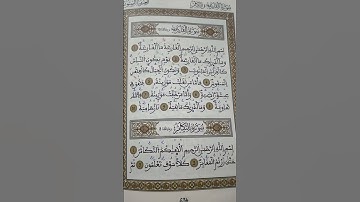 سورة القارعة
بسم الله الرحمن الرحيم القارعة ما القارعة
وما أدراك ما القارعة يوم يكون الناس
كالفراش المبثوث وتكون الجبال كالعهن
المنفوش فأما من ثقلت موازينه فهو في
عيشة راضية وأما من خفت موازينه فأمه
هاوية وما أدراك ماهيه نار حامية
سورة التكاثر
بسم الله الرحمن الرحيم ألهاكم التكاثر
حتى زرتم المقابر كلا سوف تعلمون ثم